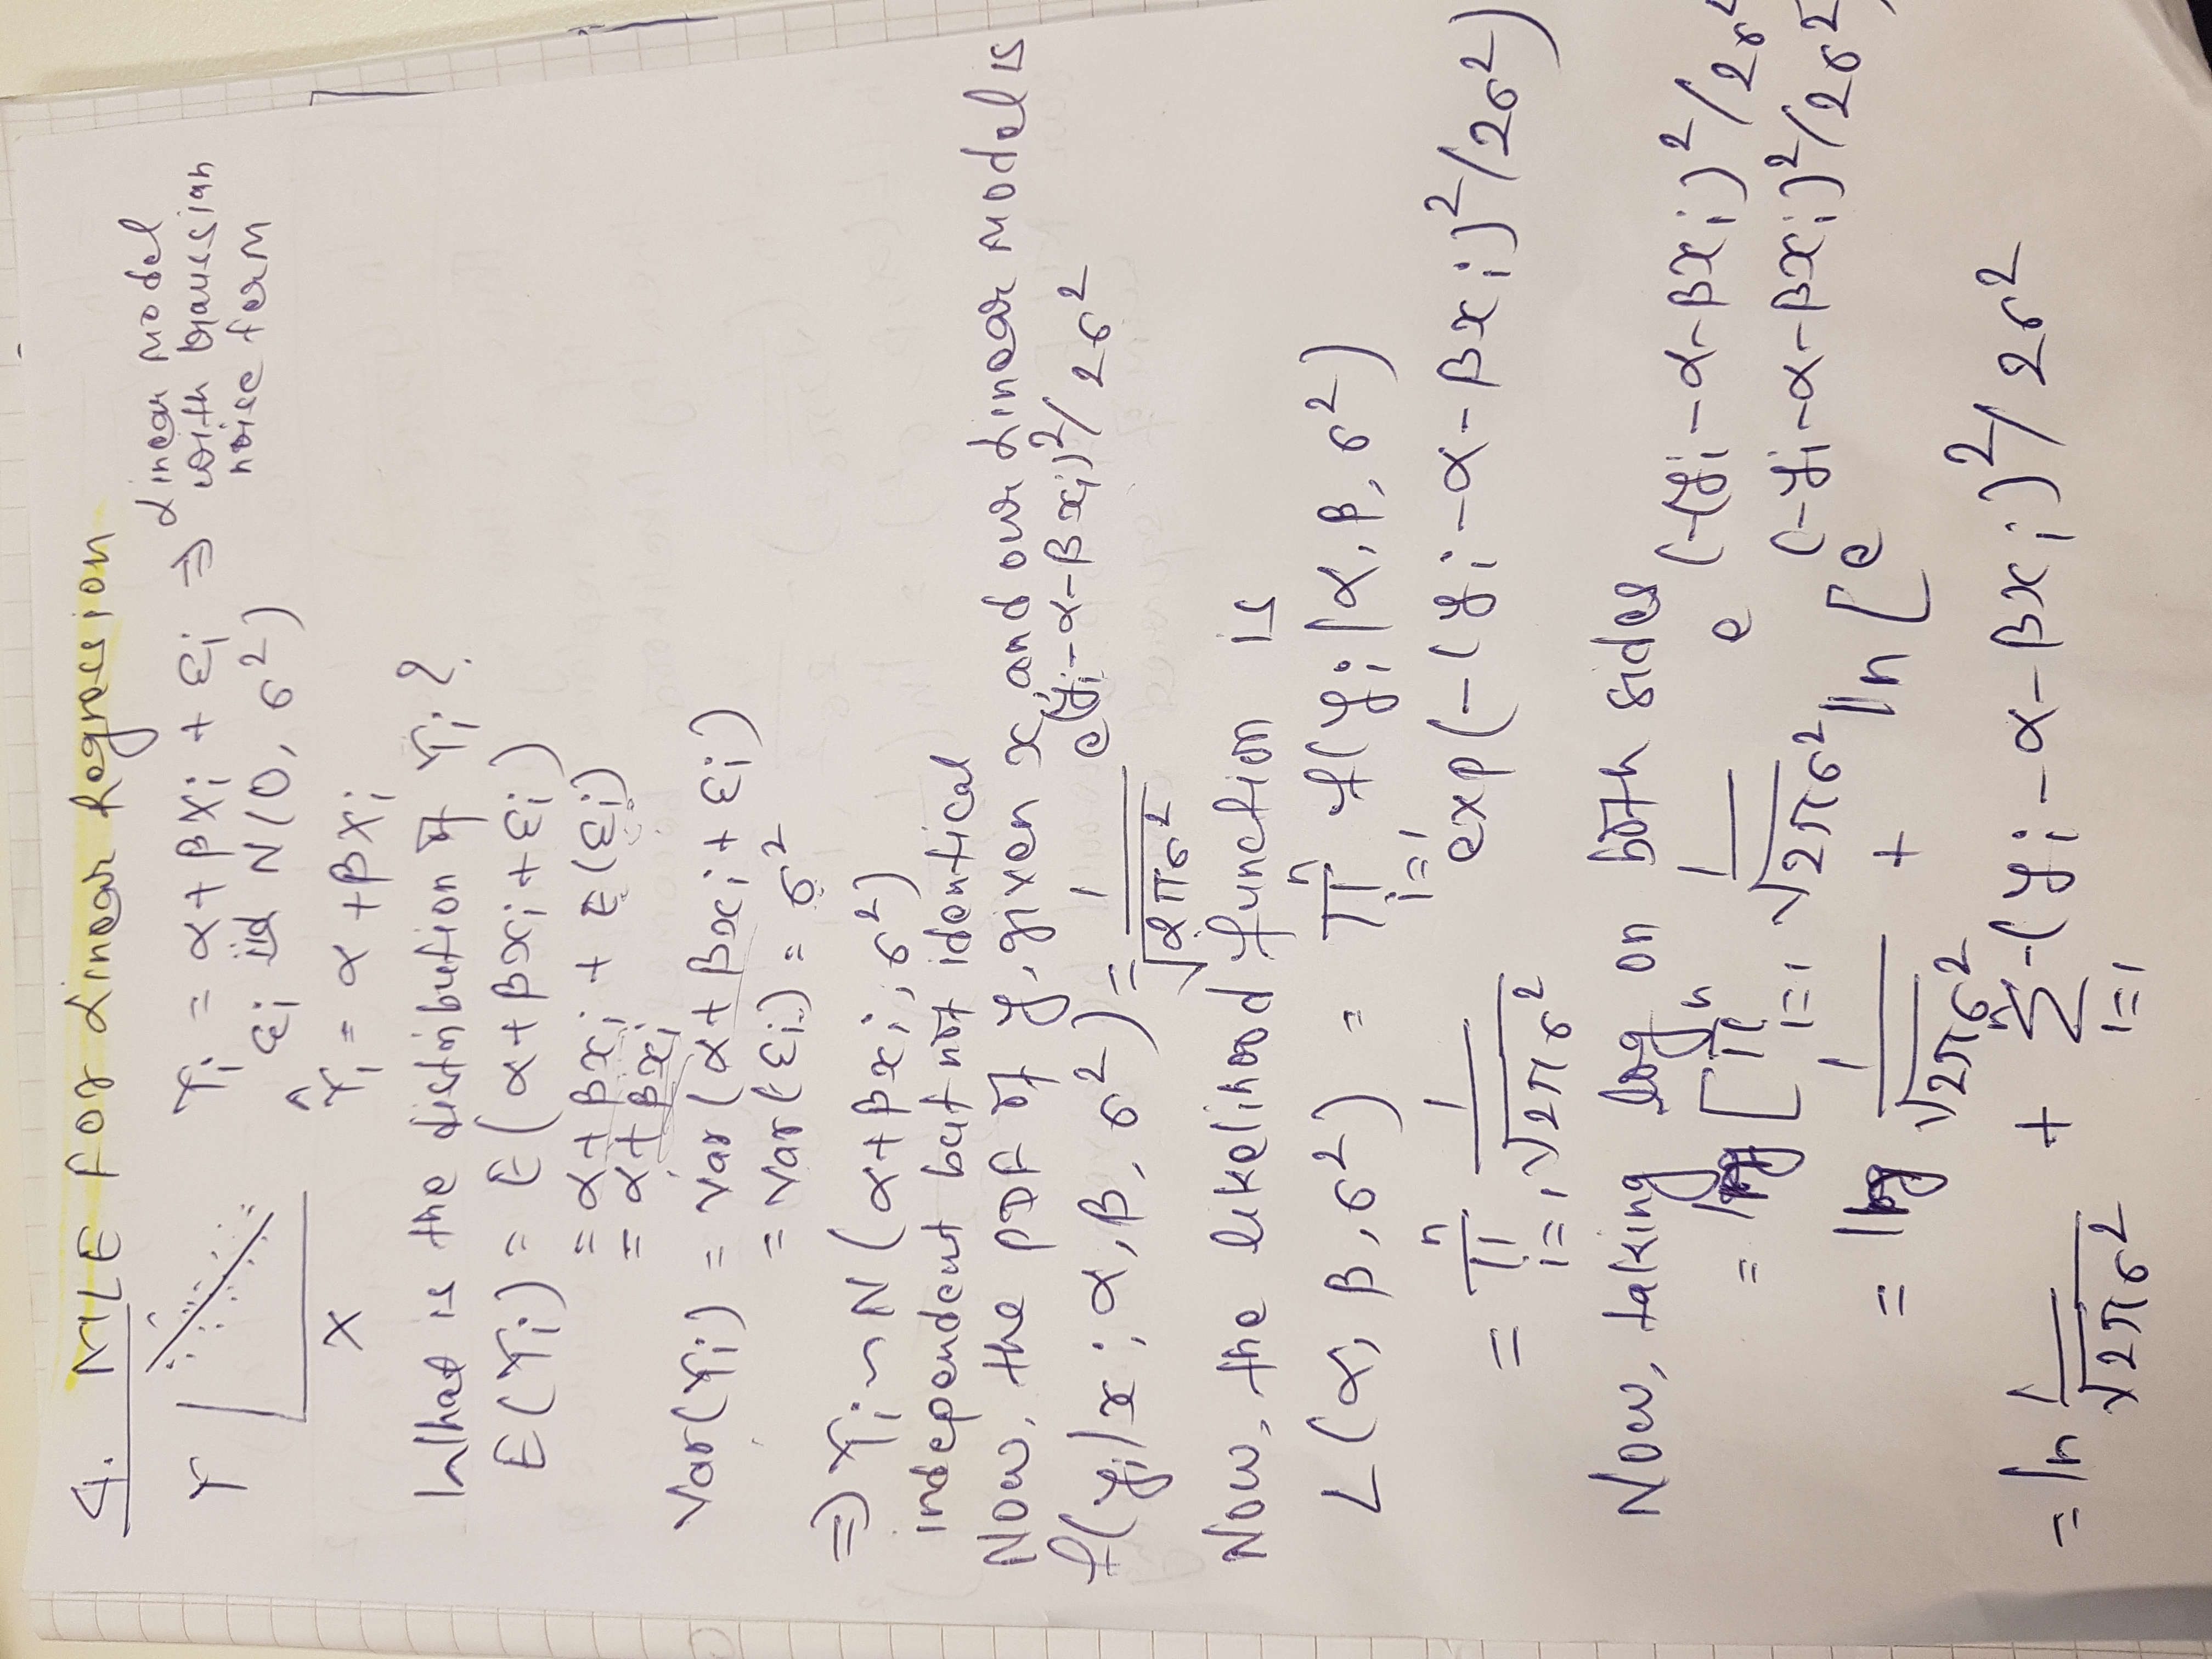 4. MLE For Linear Regression
Y
X
Yᵢ = α + βXᵢ + εᵢ ⇒ Linear Model
with Gaussian
noise term
εᵢ iid N(0, σ²)
Ŷᵢ = α + βXᵢ
What is the distribution of Yᵢ?
E(Yᵢ) = E(α + βxᵢ + εᵢ)
= α + βxᵢ + E(εᵢ)
= α + βxᵢ
Var(Yᵢ) = Var(α + βxᵢ + εᵢ)
= Var(εᵢ) = σ²
⇒ Yᵢ ~ N(α + βxᵢ, σ²)
independent but not identical
Now, the PDF of y, given x, and our Linear Model is
f(yᵢ|x; α, β, σ²) = 1/√(2πσ²) e^(yᵢ-α-βxᵢ)²/2σ²
Now, the likelihood function is
L(α, β, σ²) = Π_{i=1}^{n} f(yᵢ|α, β, σ²)
= Π_{i=1}^{n} 1/√(2πσ²) exp(-(yᵢ-α-βxᵢ)²/2σ²)
Now, taking log on both sides
= log [Π_{i=1}^{n} 1/√(2πσ²) e^(-(yᵢ-α-βxᵢ)²/2σ²
= log 1/√(2πσ²) + ln [e^(-yᵢ-α-βxᵢ)²/2σ²
= ln 1/√(2πσ²) + Σ_{i=1}^{n} -(yᵢ-α-βxᵢ)²/2σ²